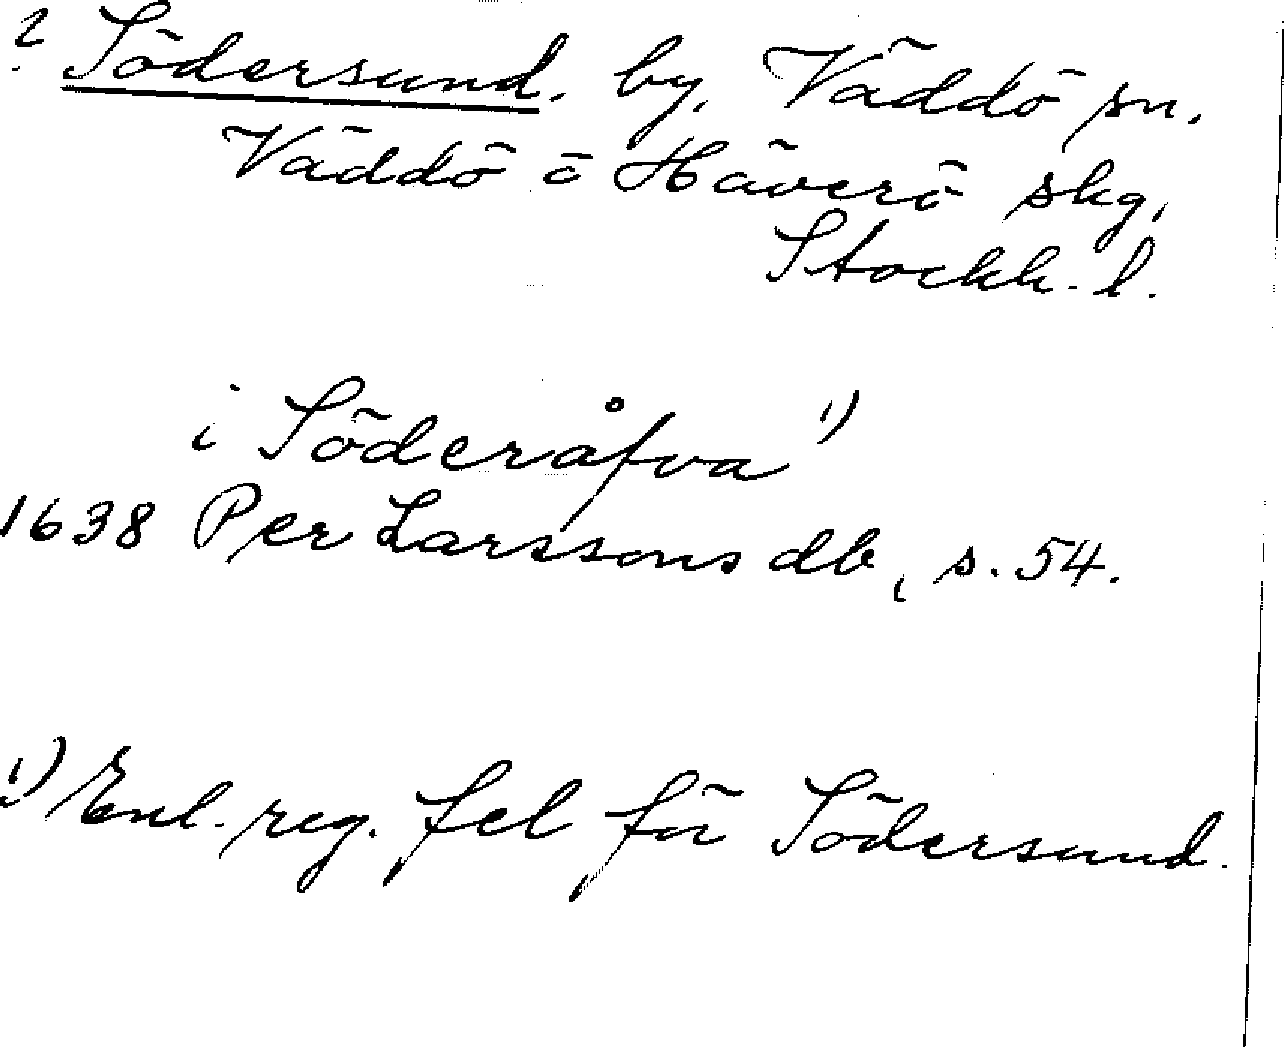 ? Södersund. by, Väddö sn.
Väddö o Häverö skg,
Stockh. l.
i Söderåfva 1)
1638 Per Larssons db, s. 54.
1) Enl. reg. fel för Södersund.